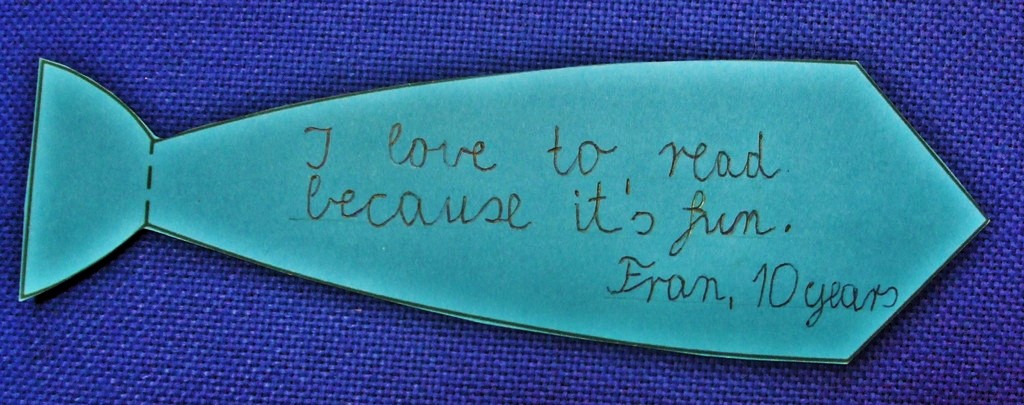 I love to read
because it's fun.
Fran, 10 years